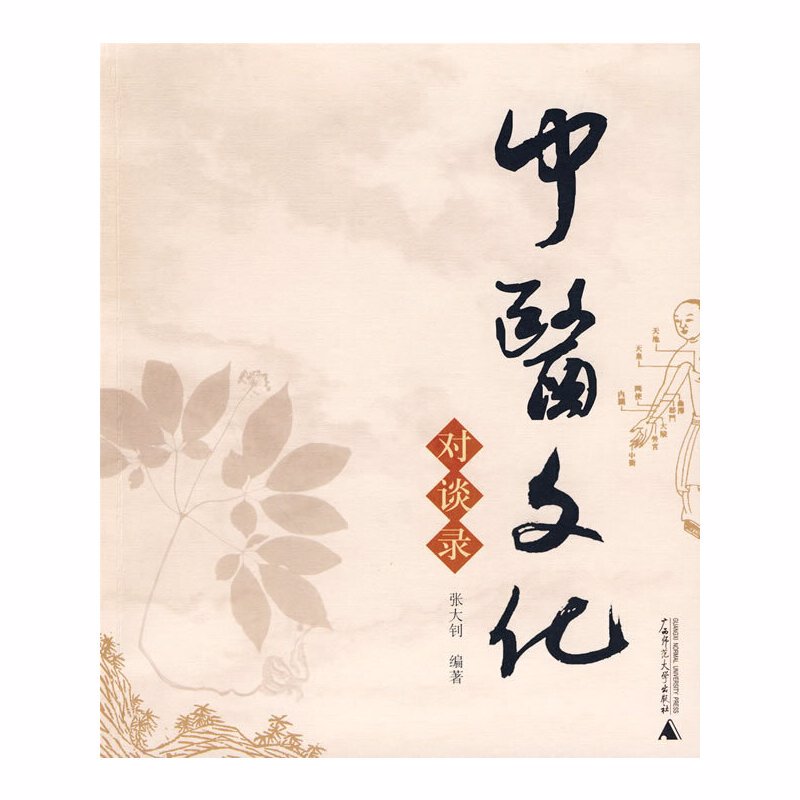 中醫文化
对谈录
张大钊 编著
天池
内關
大陵
中衝
广西师范大学出版社
GUANGXI NORMAL UNIVERSITY PRESS